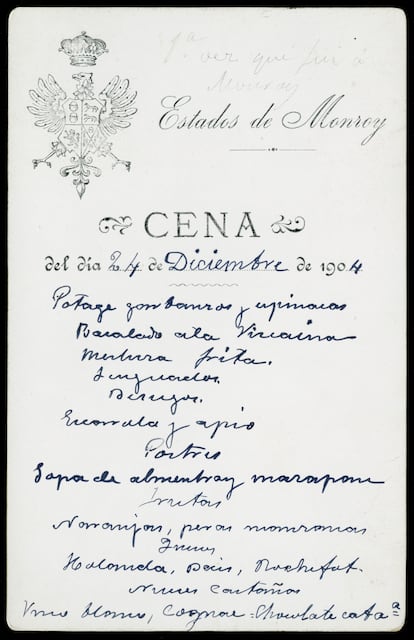 1ª vez que fui á
Monroy
Estados de Monroy
CENA
del día 24 de Diciembre de 1904
Potage garbanzos y espinacas
Bacalado a la Vizcaina
Merluza frita.
Lenguados.
Besugos.
Escarola y apio
Postres
Sopa de almendra y mazapan
Frutas
Naranjas, peras manzanas
Holanda, Rochefort.
Nueces Castañas
Vino blanco, Cognac Chocolate